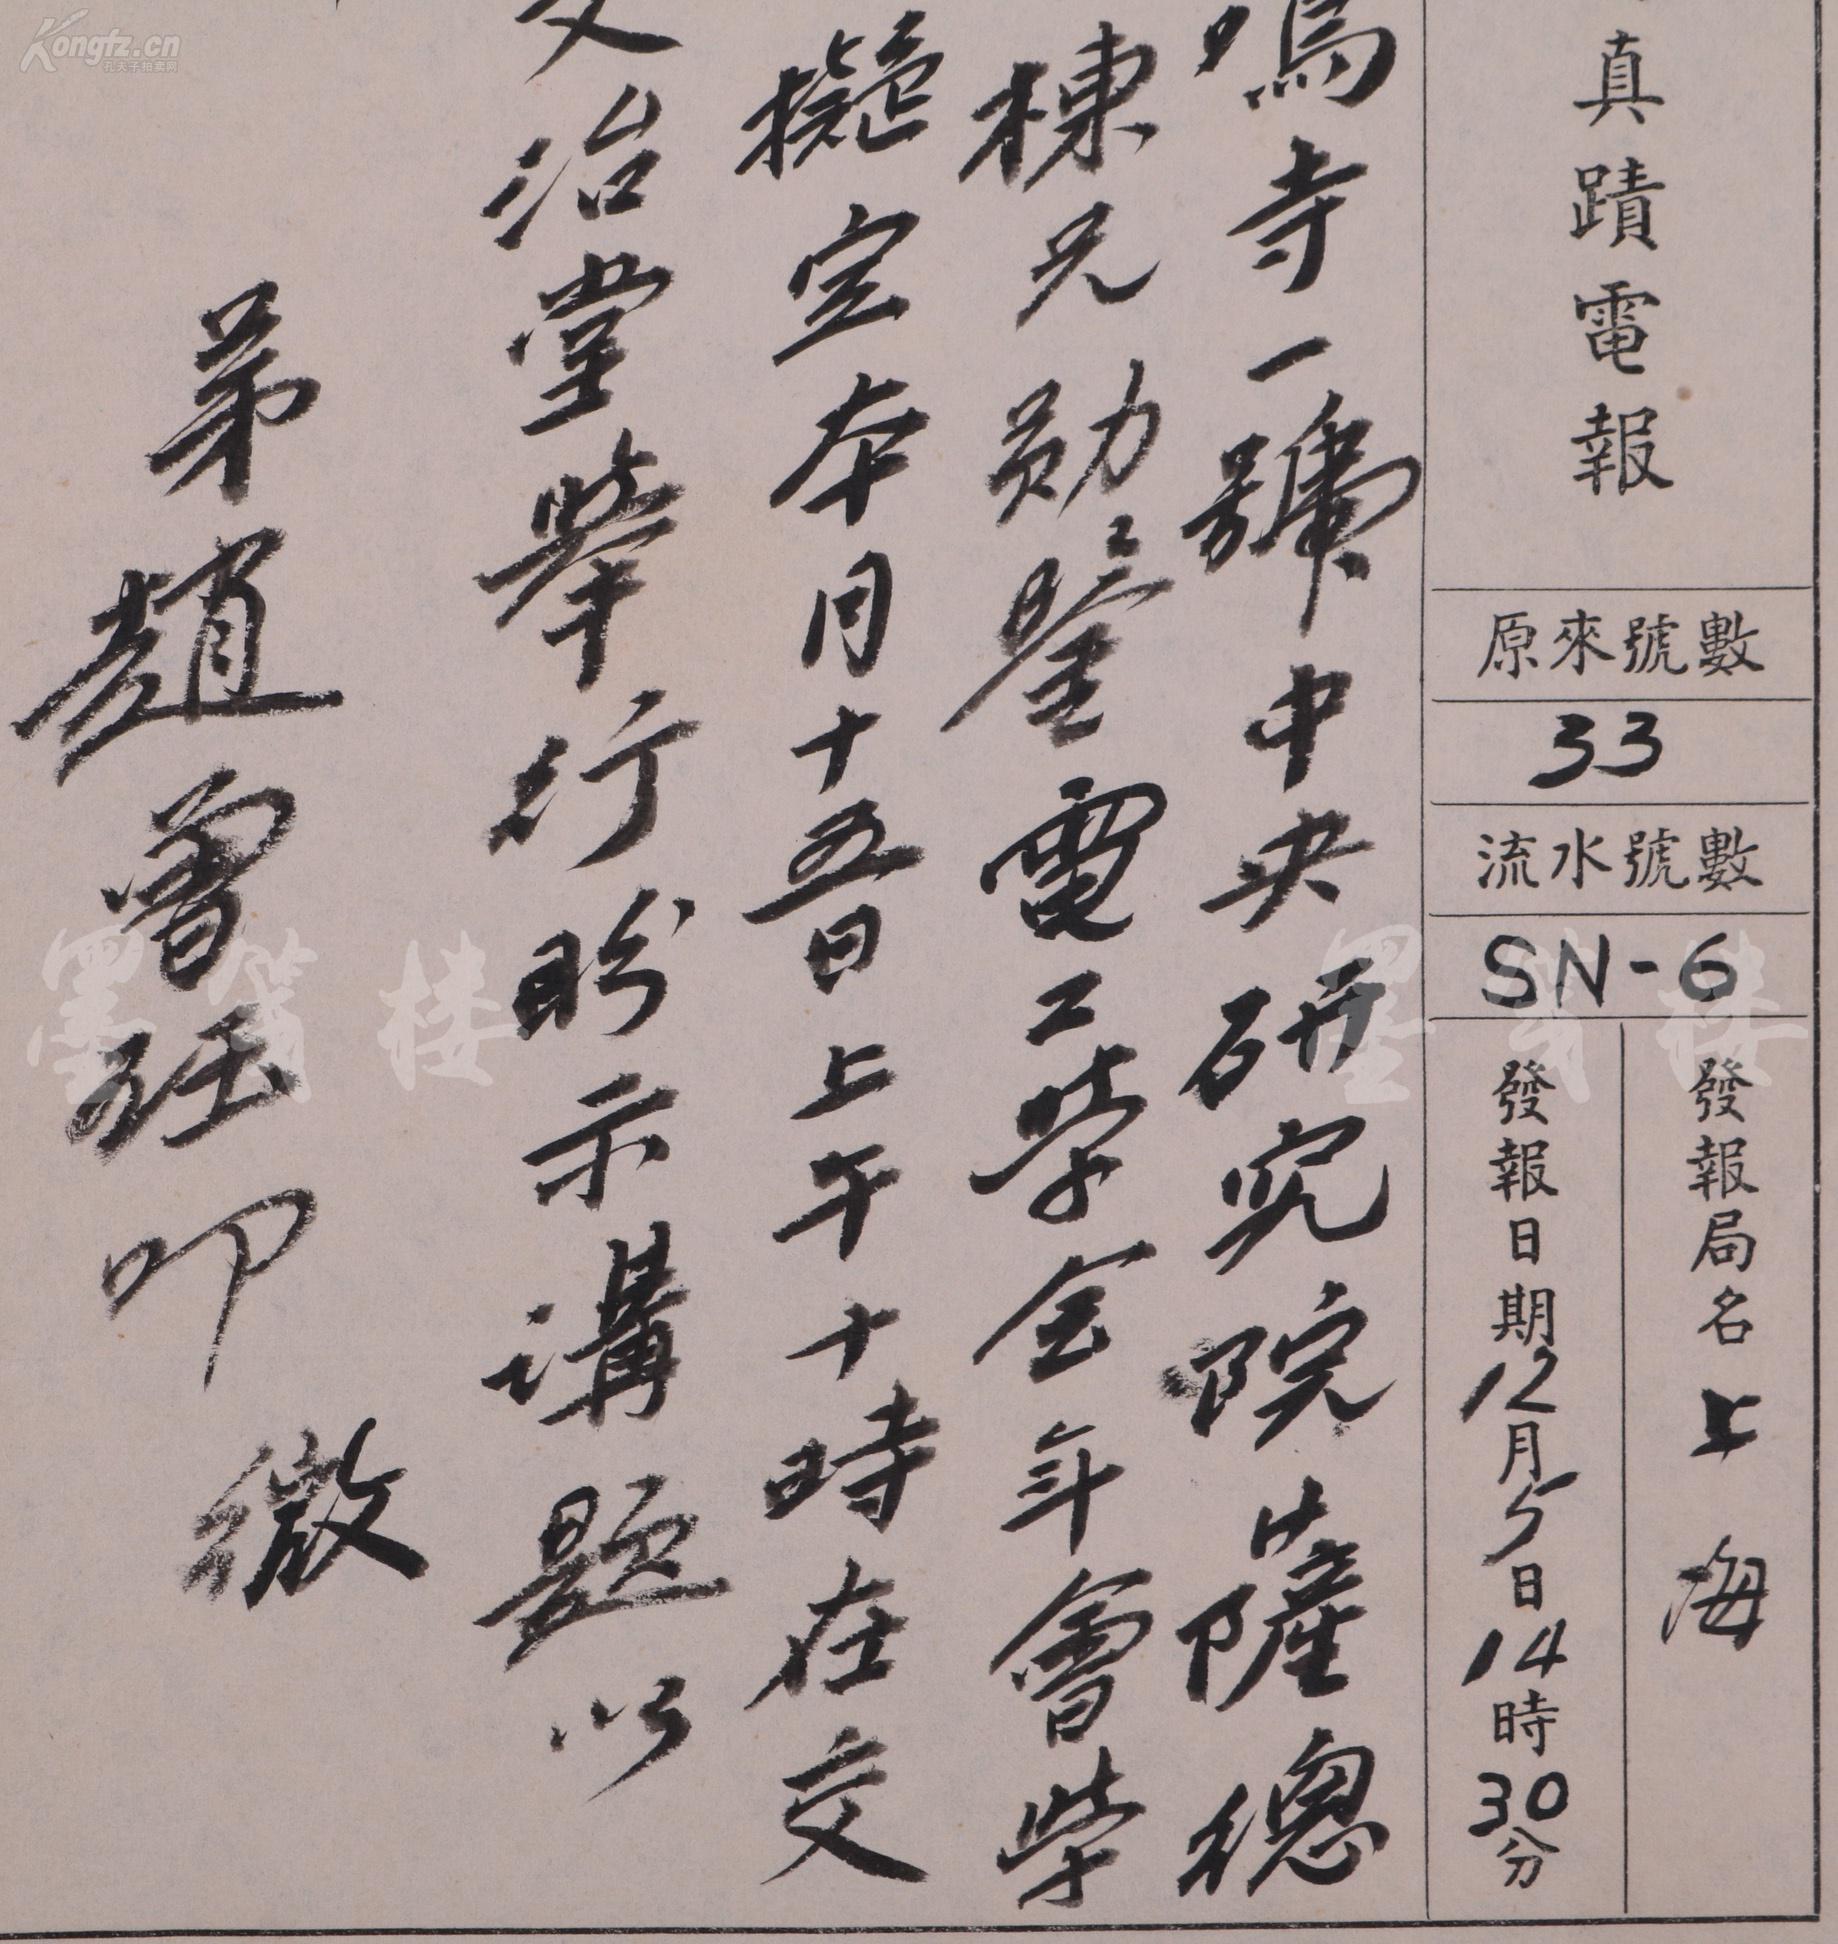 真蹟電報
原來號數
33
流水號數
SN-6
發報局名上海
發報日期12月5日14時30分
鳴寺一號中央研究院薩總
棟兄勛鑒電工學會年會
擬定本月十五日上午十時在交
文治堂舉行盼示講題以
弟趙曾珏叩 微
Kongfz.cn
孔夫子拍卖网
墨笺楼
墨笺楼